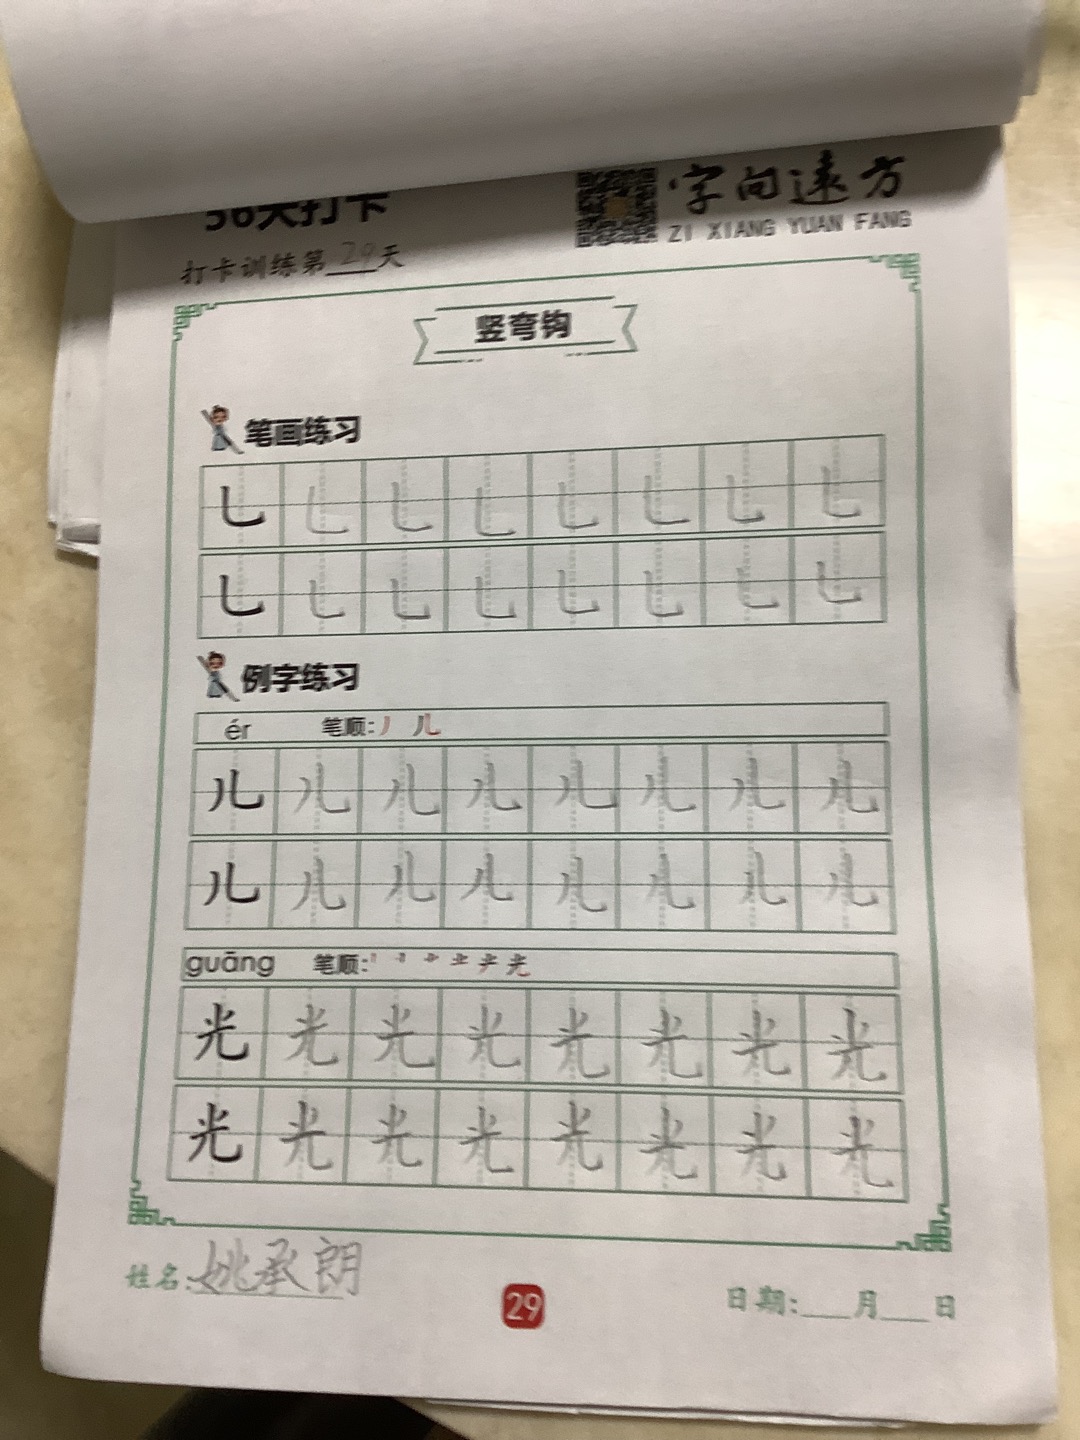 56天打卡
字向远方
ZI XIANG YUAN FANG
打卡训练第29天
竖弯钩
笔画练习
乚 乚 乚 乚 乚 乚 乚 乚
乚 乚 乚 乚 乚 乚 乚 乚
例字练习
ér 笔顺:丿 儿
儿 儿 儿 儿 儿 儿 儿 儿
儿 儿 儿 儿 儿 儿 儿 儿
guāng 笔顺:
光 光 光 光 光 光 光 光
光 光 光 光 光 光 光 光
姓名:姚承朗
29
日期:___月___日